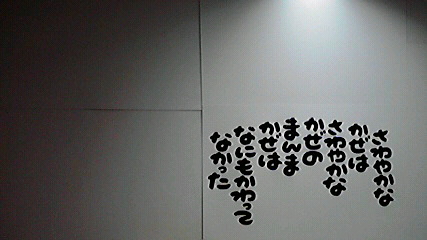 さわやかな
かぜは
さわやかな
かぜの
まんま
かぜは
なにもかわって
なかった